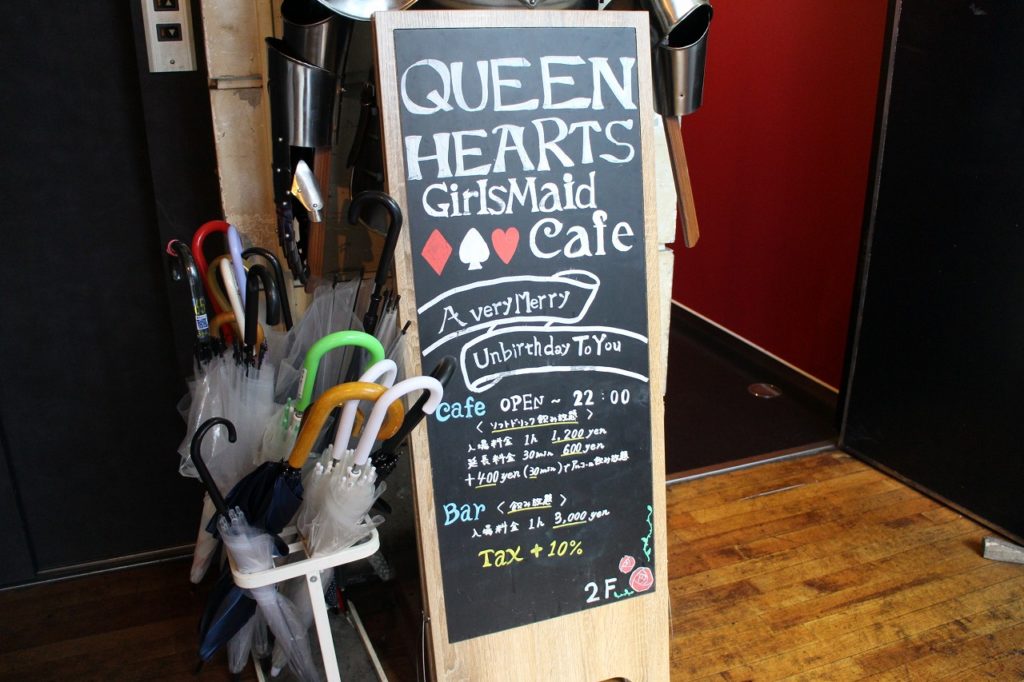 QUEEN
HEARTS
GirlsMaid
Cafe
A very Merry
Unbirthday To You
Cafe OPEN ~ 22:00
< ソフトドリンク飲み放題 >
入場料金 1h 1,200 yen
延長料金 30min 600 yen
+400 yen (30min)でアルコール飲み放題
Bar < 飲み放題 >
入場料金 1h 3,000 yen
Tax + 10%
2F